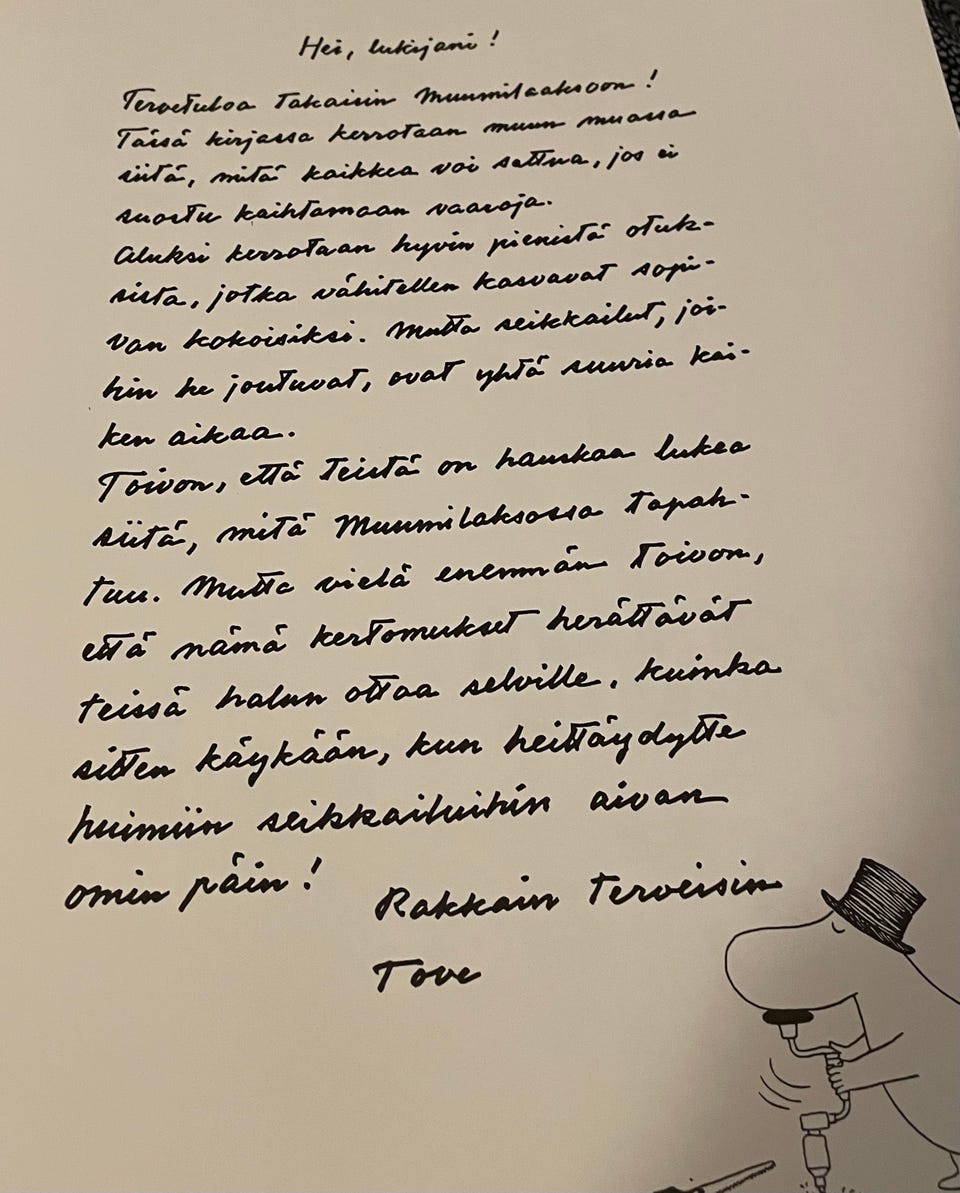 Hei, lukijani!
Tervetuloa takaisin Muumilaaksoon!
Tässä kirjassa kerrotaan muun muassa
siitä, mitä kaikkea voi sattua, jos ei
suostu kaihtamaan vaaroja.
Aluksi kerrotaan hyvin pienistä otuk-
sista, jotka vähitellen kasvavat sopi-
van kokoisiksi. Mutta seikkailut, joi-
hin he joutuvat, ovat yhtä suuria kai-
ken aikaa.
Toivon, että teistä on hauskaa lukea
siitä, mitä Muumilaksossa tapah-
tuu. Mutta vielä enemmän toivon,
että nämä kertomukset herättävät
teissä halun ottaa selville, kuinka
sitten käykään, kun heittäydytte
huimiin seikkailuihin aivan
omin päin!
Rakkain terveisin
Tove